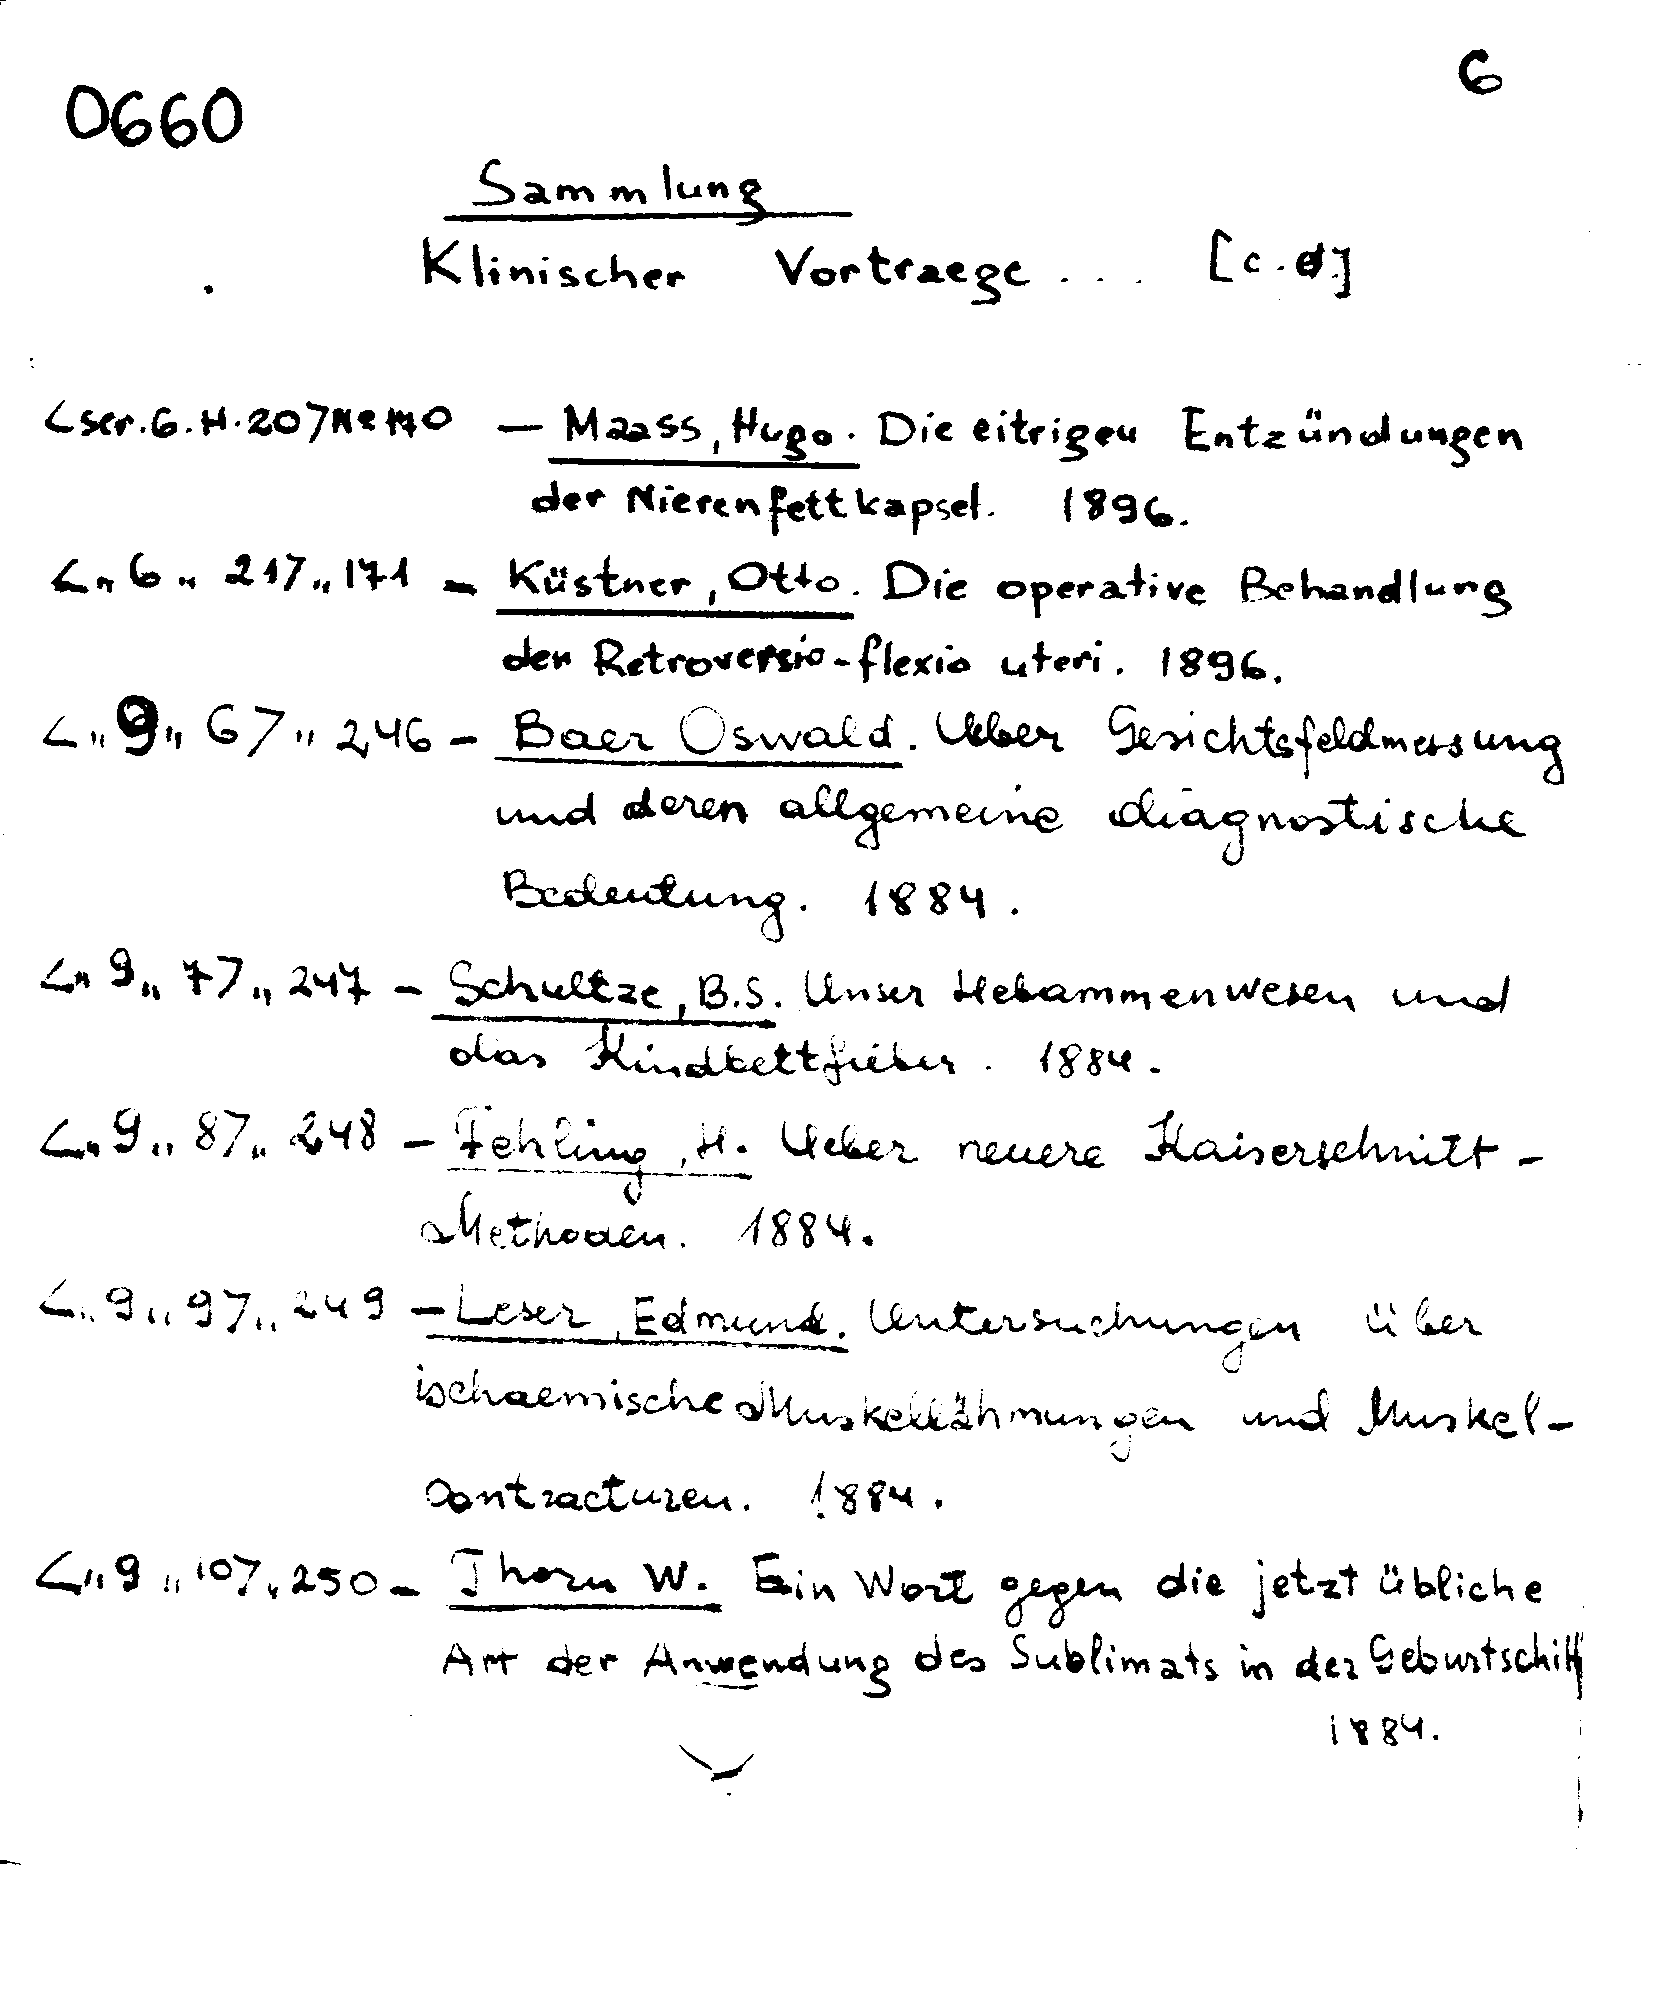 6
0660
Sammlung
Klinischer Vortraege . . . [c.d.]
<ser.6.H.20>№170 — Maass, Hugo. Die eitrigen Entzündungen
der Nierenfettkapsel. 1896.
<„6„ 21>„171 — Küstner, Otto. Die operative Behandlung
der Retroversio-flexio uteri. 1896.
<„9„ 6>„ 246 — Baer Oswald. Ueber Gesichtsfeldmessung
und deren allgemeine diagnostische
Bedeutung. 1884.
<„9„ 7>„ 247 — Schultze, B.S. Unser Hebammenwesen und
das Kindbettfieber. 1884.
<„9„ 8>„ 248 — Fehling, H. Ueber neuere Kaiserschnitt-
Methoden. 1884.
<„9„ 9>„ 249 — Leser, Edmund. Untersuchungen über
ischaemische Muskellähmungen und Muskel-
contracturen. 1884.
<„9„ 10>„250 — Thorn W. Ein Wort gegen die jetzt übliche
Art der Anwendung des Sublimats in der
1884.